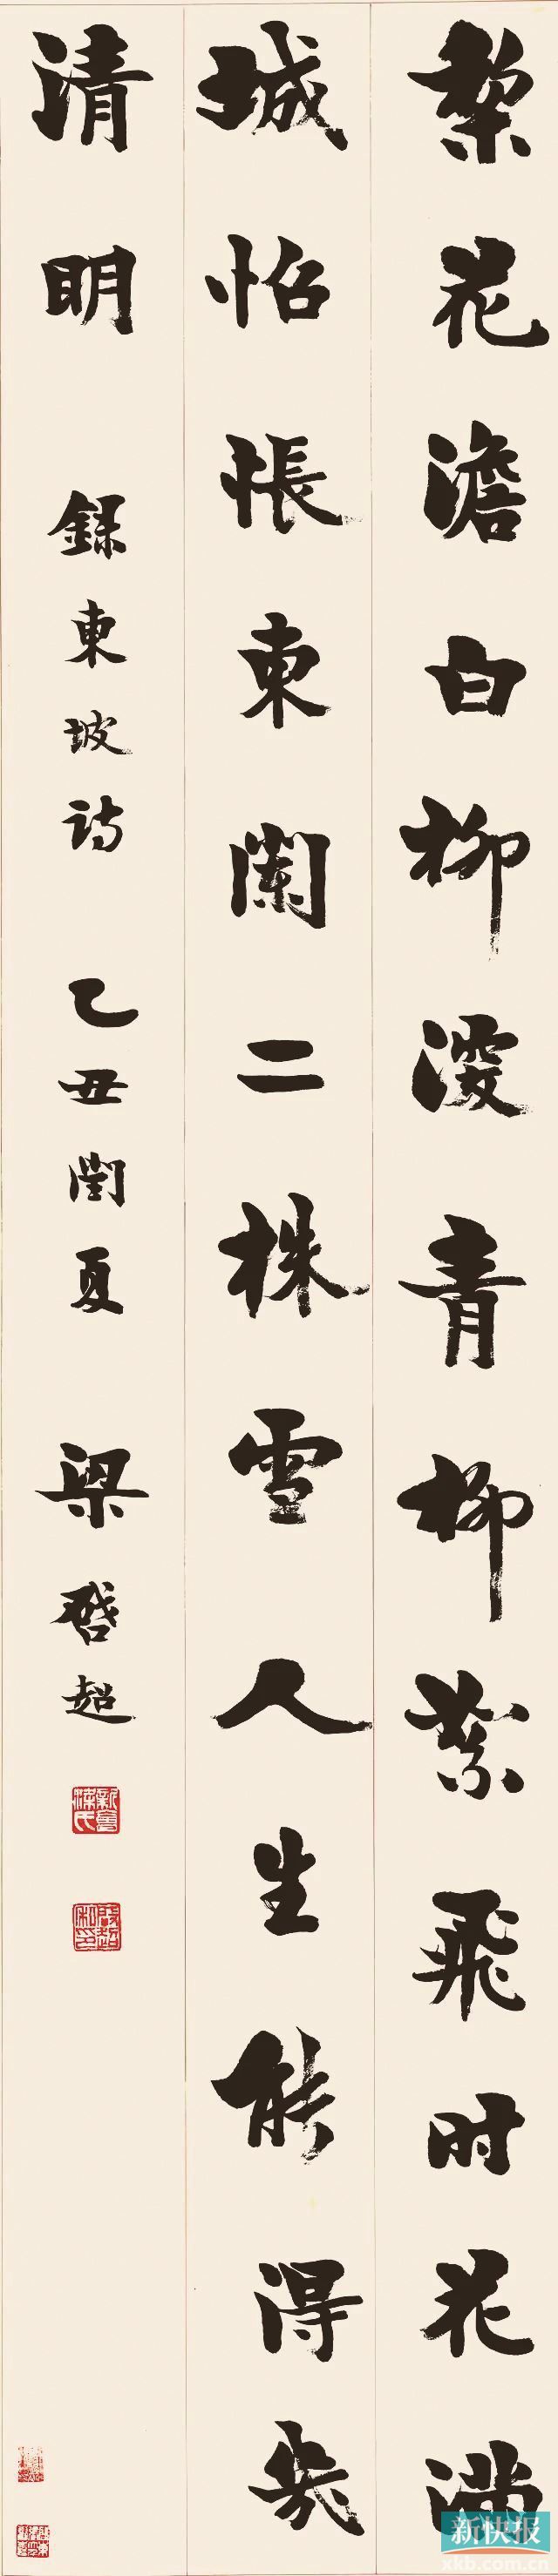 棃花澹白柳深青柳絮飛时花滿
城怊悵東闌二株雪人生能得幾
清明 錄東坡诗 乙丑閏夏 梁啓超
新會梁氏
啓超私印
新快报
xkb.com.cn